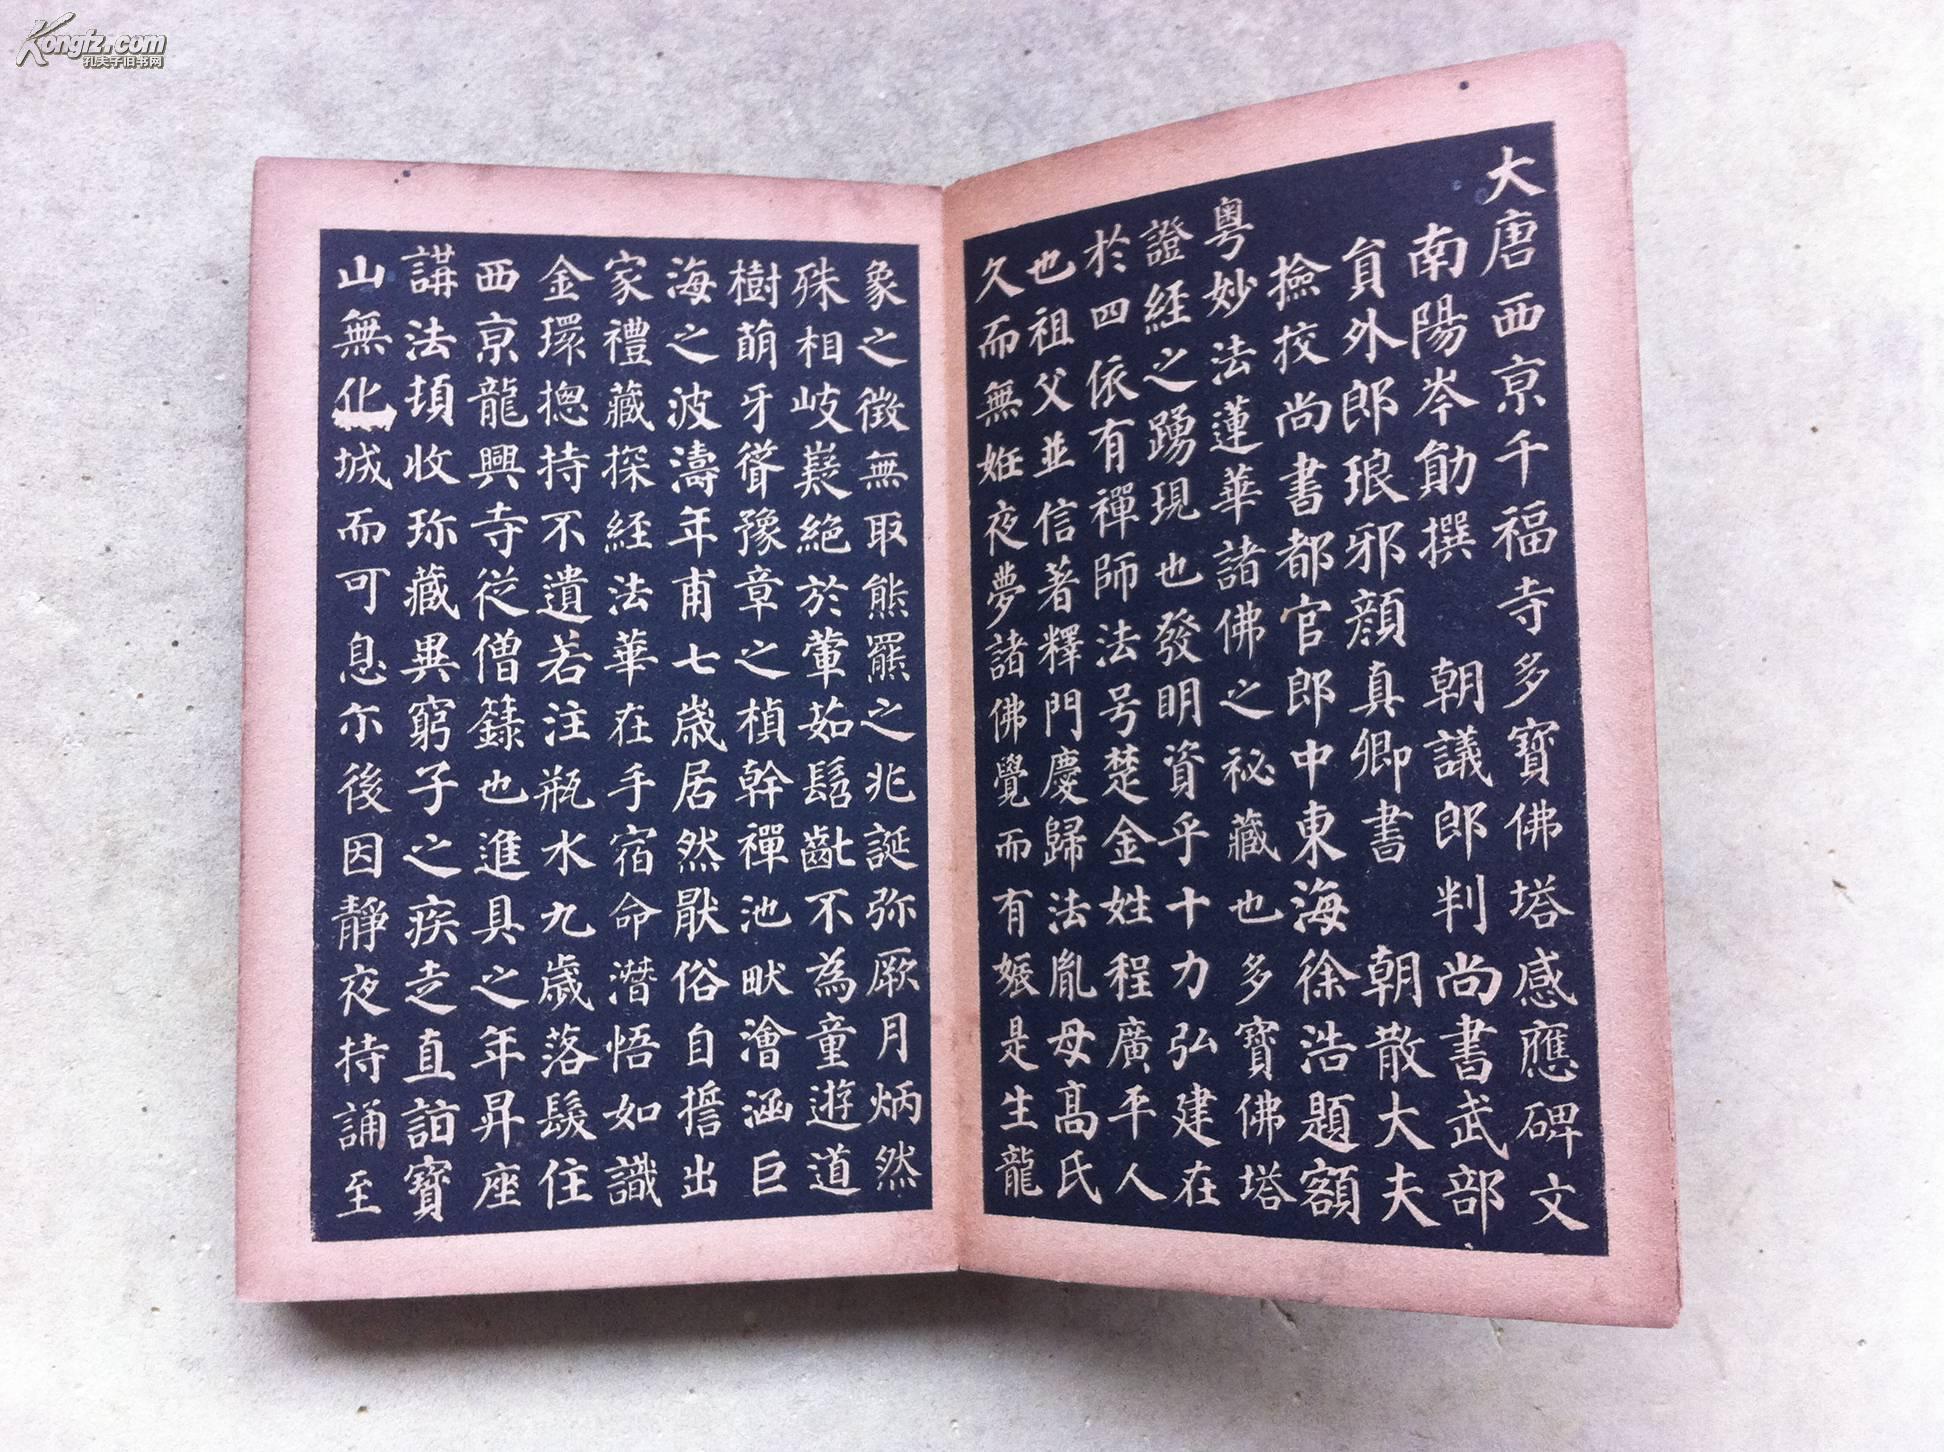 Kongfz.com
孔夫子旧书网
大唐西京千福寺多寶佛塔感應碑文
南陽岑勛撰 朝議郎判尚書武部
貟外郎琅邪顏真卿書 朝散大夫
撿挍尚書都官郎中東海徐浩題額
粵妙法蓮華諸佛之秘藏也多寶佛塔
證經之踴現也發明資乎十力弘建在
於四依有禪師法号楚金姓程廣平人
也祖父並信著釋門慶歸法胤母高氏
久而無姙夜夢諸佛覺而有娠是生龍
象之徵無取熊羆之兆誕弥厥月炳然
殊相岐嶷絕於葷茹髫齔不為童遊道
樹萌牙聳豫章之楨幹禪池畎澮涵巨
海之波濤年甫七歲居然猒俗自誓出
家禮藏探經法華在手宿命潛悟如識
金環揔持不遺若注瓶水九歲落髮住
西京龍興寺從僧籙也進具之年昇座
講法頓收珎藏異窮子之疾走直詣寶
山無化城而可息尒後因靜夜持誦至